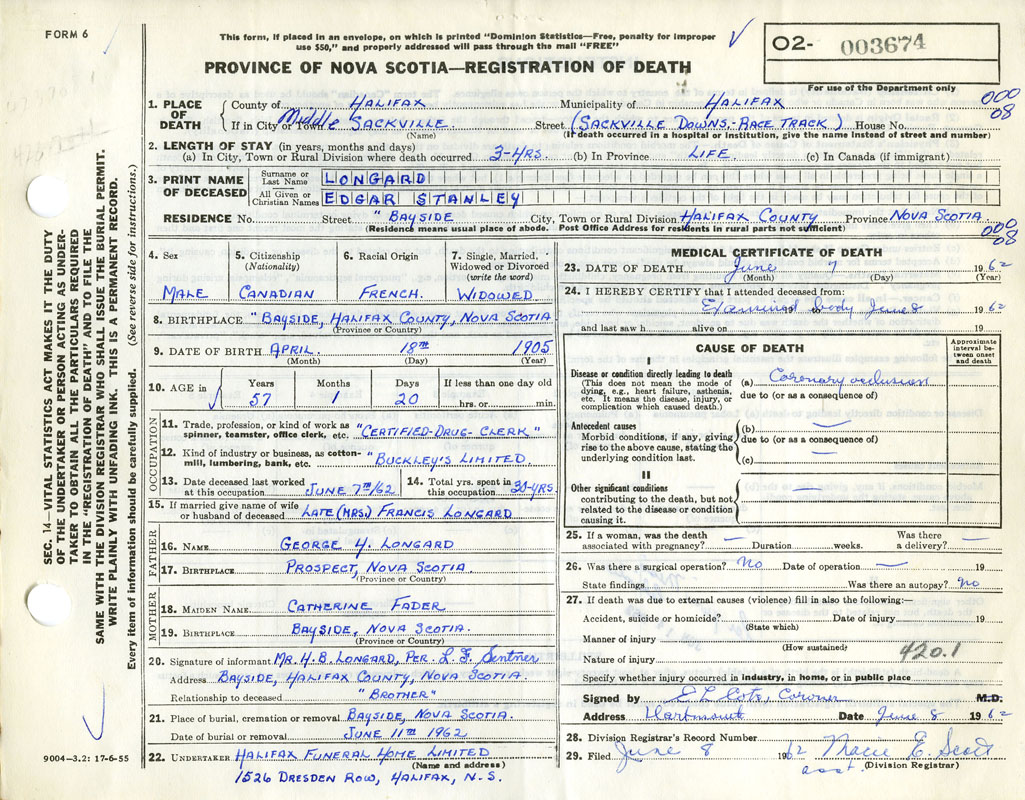 FORM 6
This form, if placed in an envelope, on which is printed "Dominion Statistics—Free, penalty for improper
use $50," and properly addressed will pass through the mail "FREE"
O2- 003674
For use of the Department only
PROVINCE OF NOVA SCOTIA—REGISTRATION OF DEATH
000
08
1. PLACE OF DEATH { County of HALIFAX Municipality of HALIFAX
If in City or Town Middle SACKVILLE (Name) Street (SACKVILLE DOWNS-RACE TRACK) House No.
(If death occurred in a hospital or institution, give the name instead of street and number)
2. LENGTH OF STAY (in years, months and days)
(a) In City, Town or Rural Division where death occurred 3-HRS. (b) In Province LIFE. (c) In Canada (if immigrant)
3. PRINT NAME OF DECEASED { Surname or Last Name LONGARD
All Given or Christian Names EDGAR STANLEY
RESIDENCE No. Street "BAYSIDE City, Town or Rural Division HALIFAX COUNTY Province NOVA SCOTIA.
(Residence means usual place of abode. Post Office Address for residents in rural parts not sufficient)
000
08
4. Sex MALE
5. Citizenship (Nationality) CANADIAN
6. Racial Origin FRENCH.
7. Single, Married, Widowed or Divorced (write the word) WIDOWED
8. BIRTHPLACE "BAYSIDE, HALIFAX COUNTY, NOVA SCOTIA
(Province or Country)
9. DATE OF BIRTH APRIL. 18TH 1905
(Month) (Day) (Year)
10. AGE in { Years Months Days If less than one day old
57 1 20 hrs. or min.
OCCUPATION
11. Trade, profession, or kind of work as spinner, teamster, office clerk, etc. "CERTIFIED-DRUG-CLERK"
12. Kind of industry or business, as cotton-mill, lumbering, bank, etc. "BUCKLEY'S LIMITED.
13. Date deceased last worked at this occupation JUNE 7TH/62
14. Total yrs. spent in this occupation 30-YRS.
15. If married give name of wife or husband of deceased LATE (MRS.) FRANCIS LONGARD
FATHER
16. NAME GEORGE H. LONGARD
17. BIRTHPLACE PROSPECT, NOVA SCOTIA.
(Province or Country)
MOTHER
18. MAIDEN NAME CATHERINE FADER
19. BIRTHPLACE BAYSIDE, NOVA SCOTIA.
(Province or Country)
20. Signature of informant MR. H. B. LONGARD, PER. L. F. Sentner
Address BAYSIDE, HALIFAX COUNTY, NOVA SCOTIA.
Relationship to deceased "BROTHER"
21. Place of burial, cremation or removal BAYSIDE, NOVA SCOTIA.
Date of burial or removal JUNE 11TH 1962
22. UNDERTAKER HALIFAX FUNERAL HOME LIMITED
(Name and address)
1526 DRESDEN ROW, HALIFAX, N.S.
MEDICAL CERTIFICATE OF DEATH
23. DATE OF DEATH June 7 1962
(Month) (Day) (Year)
24. I HEREBY CERTIFY that I attended deceased from:
Examined body June 8 1962
and last saw h alive on 19
CAUSE OF DEATH
Approximate interval between onset and death
I
Disease or condition directly leading to death
(This does not mean the mode of dying, e.g., heart failure, asthenia, etc. It means the disease, injury, or complication which caused death.)
(a) Coronary occlusion
due to (or as a consequence of)
Antecedent causes
Morbid conditions, if any, giving rise to the above cause, stating the underlying condition last.
(b) —
due to (or as a consequence of)
(c) —
II
Other significant conditions
contributing to the death, but not related to the disease or condition causing it.
—
25. If a woman, was the death associated with pregnancy? — Duration weeks. Was there a delivery? —
26. Was there a surgical operation? No Date of operation — 19
State findings Was there an autopsy? No
27. If death was due to external causes (violence) fill in also the following:—
Accident, suicide or homicide? Date of injury 19
(State which)
Manner of injury
(How sustained)
Nature of injury 420.1
Specify whether injury occurred in industry, in home, or in public place
Signed by E L Cote, Coroner M.D.
Address Dartmouth Date June 8 1962
28. Division Registrar's Record Number
29. Filed June 8 1962 E. Scott
asst. (Division Registrar)
SEC. 14—VITAL STATISTICS ACT MAKES IT THE DUTY
OF THE UNDERTAKER OR PERSON ACTING AS UNDER-
TAKER TO OBTAIN ALL THE PARTICULARS REQUIRED
IN THE "REGISTRATION OF DEATH" AND TO FILE THE
SAME WITH THE DIVISION REGISTRAR WHO SHALL ISSUE THE BURIAL PERMIT.
WRITE PLAINLY WITH UNFADING INK. THIS IS A PERMANENT RECORD.
Every item of information should be carefully supplied. (See reverse side for instructions.)
9004-3.2: 17-6-55